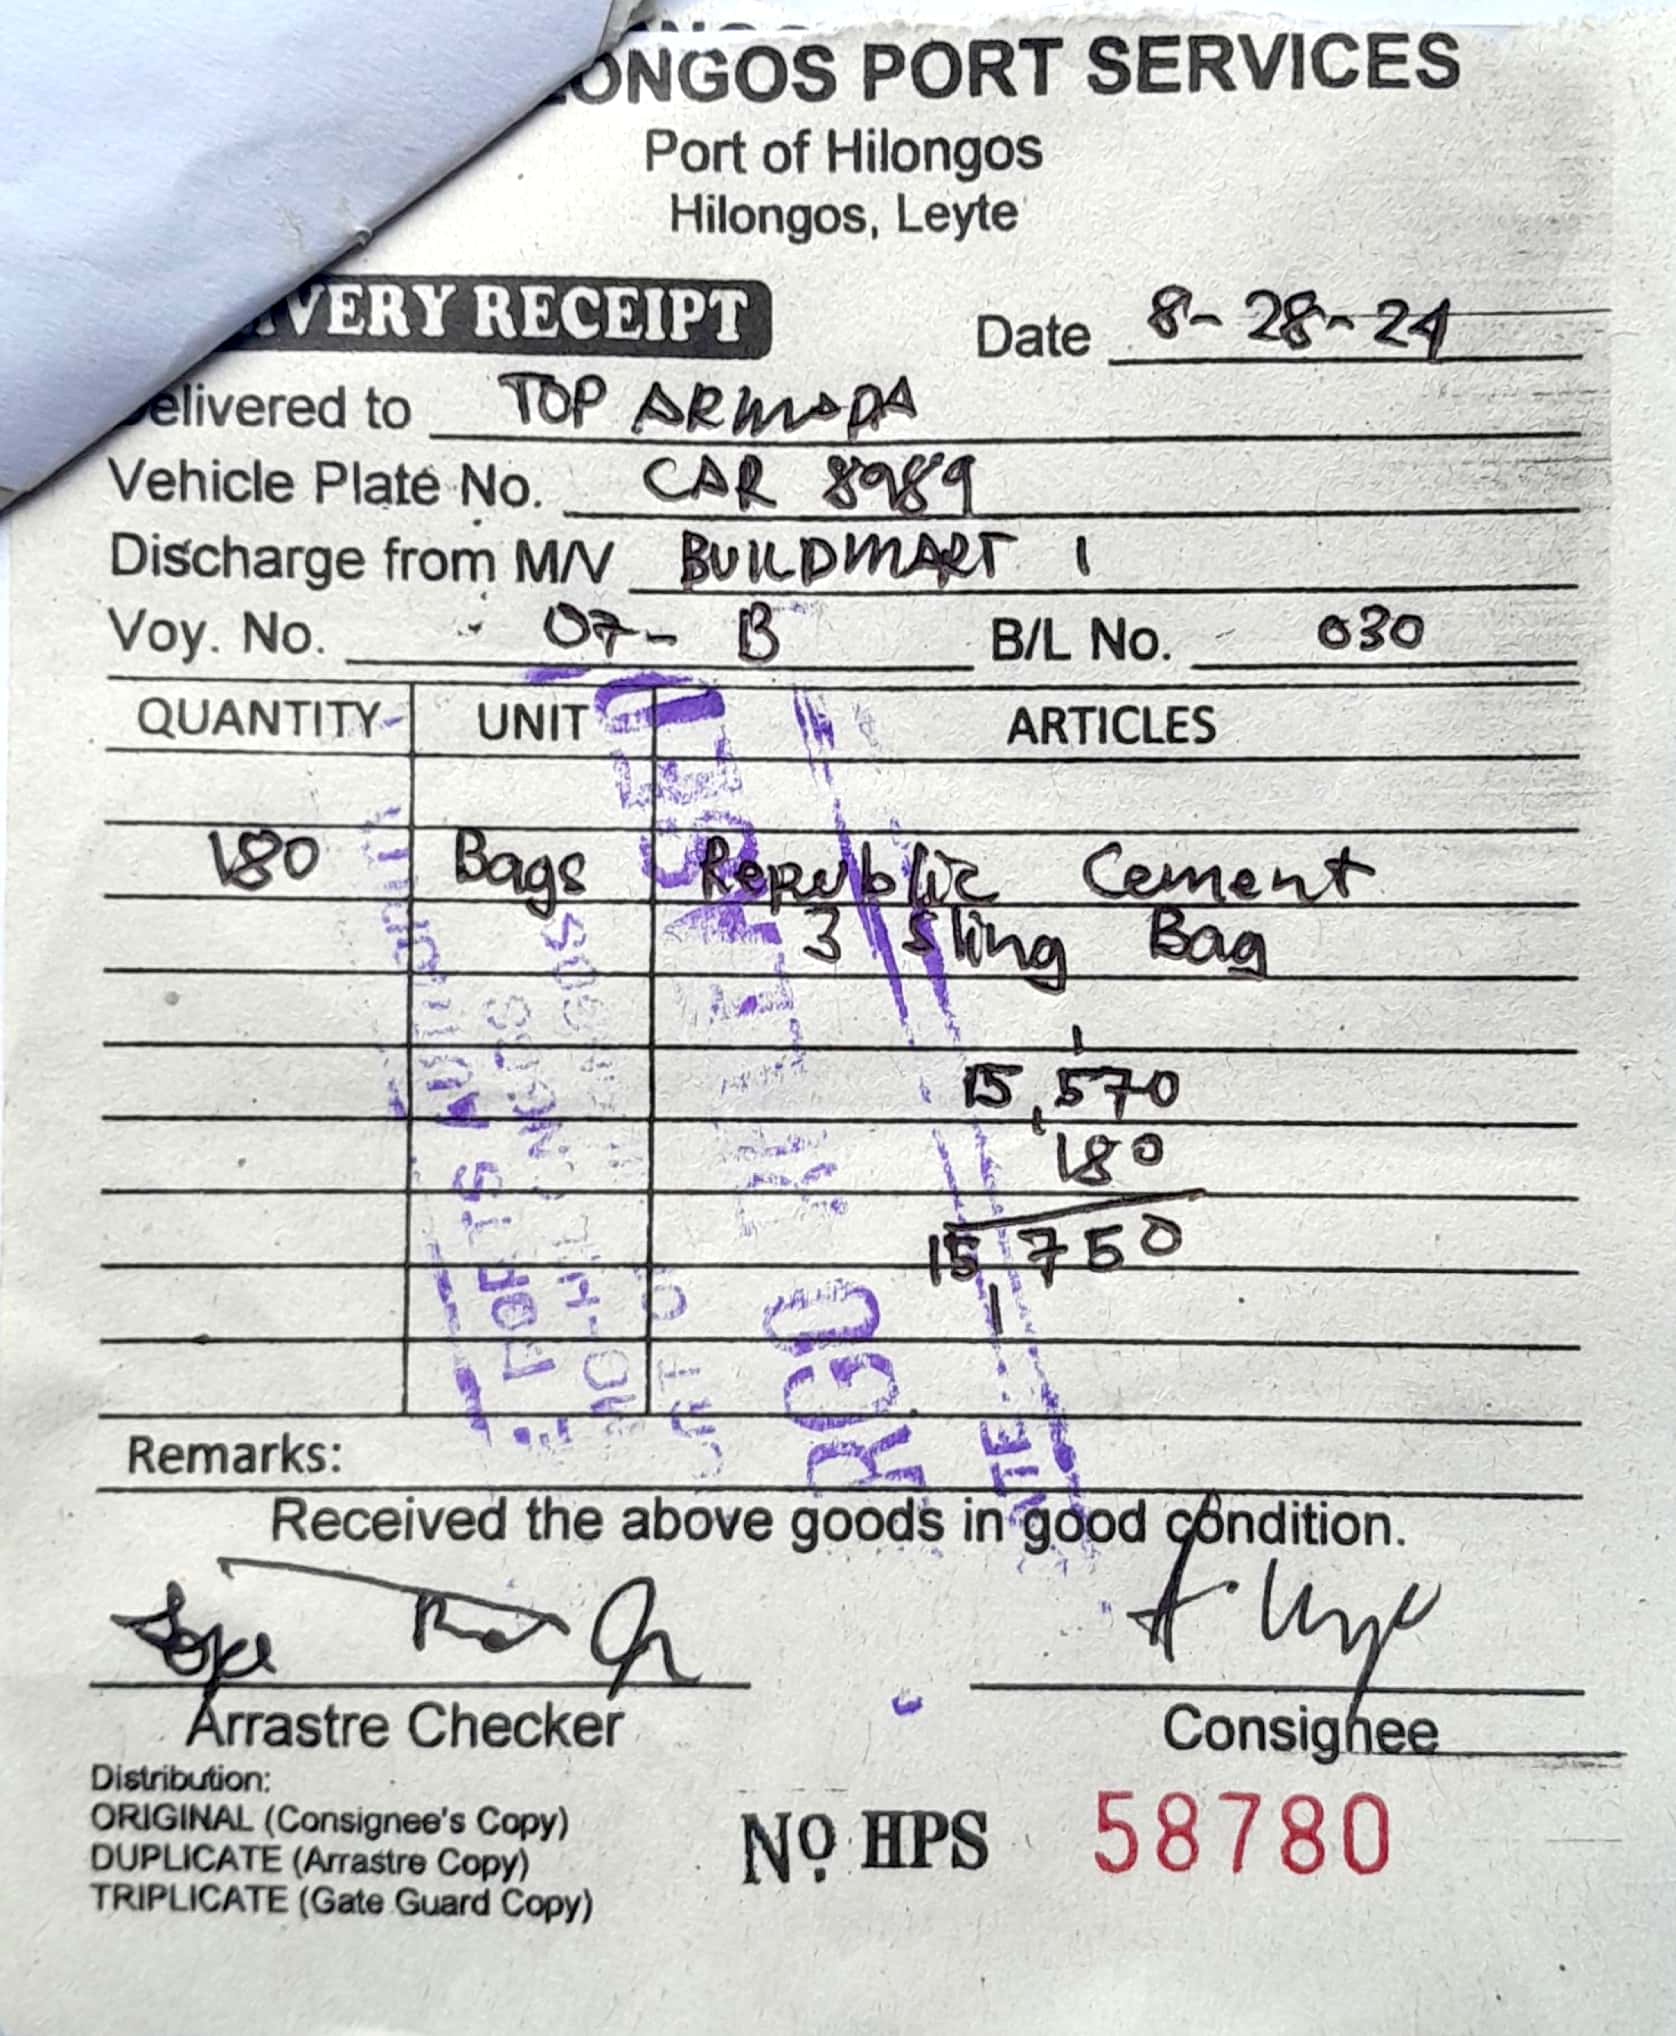 ONGOS PORT SERVICES
Port of Hilongos
Hilongos, Leyte
VERY RECEIPT
Date 8-28-24
elivered to TOP ARMADA
Vehicle Plate No. CAR 8989
Discharge from M/V BUILDMART 1
Voy. No. 07-B B/L No. 030
QUANTITY UNIT ARTICLES
180 Bags Republic Cement
3 Sling Bag
15,570
180
15,750
Remarks:
Received the above goods in good condition.
Arrastre Checker Consignee
Distribution:
ORIGINAL (Consignee's Copy)
DUPLICATE (Arrastre Copy)
TRIPLICATE (Gate Guard Copy)
No HPS 58780